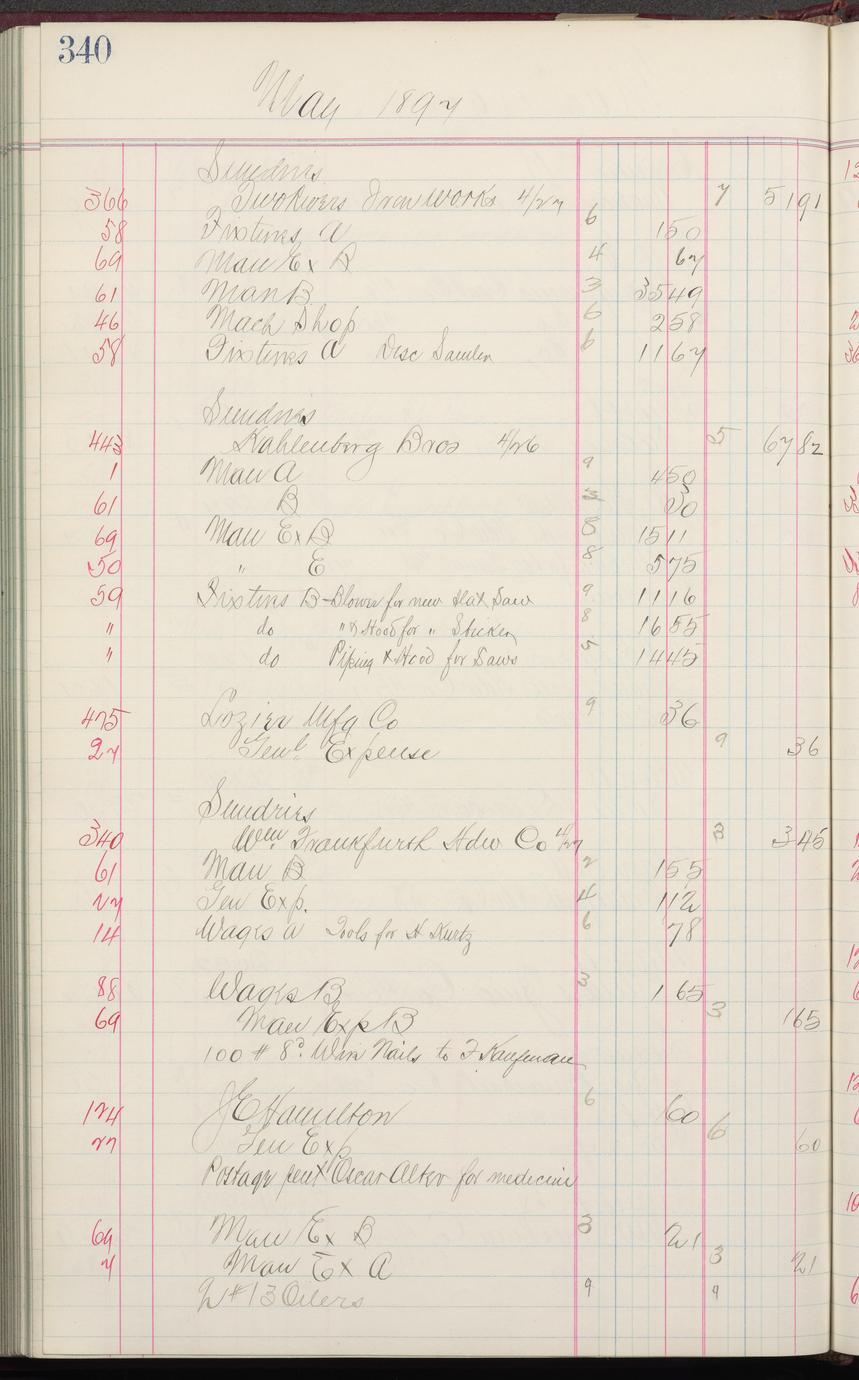 340
May 1897
Sundries
366 Two Rivers Iron Works 4/27 7 51 91
58 Fixtures A 6 1 50
69 Man Ex B 4 67
61 Man B 3 35 49
46 Mach Shop 6 2 58
58 Fixtures A Disc Sander 6 11 67
Sundries
443 Kahlenberg Bros 4/26 5 67 82
1 Man A 9 4 50
61 B 3 30
69 Man Ex B 8 15 11
50 " E 8 5 75
59 Fixtures B - Blower for new Slat Saw 9 11 16
" do " & Hood for " Sticker 8 16 55
" do Piping & Hood for Saws 5 14 45
475 Lozier Mfg Co 9 36
27 Genl Expense 9 36
Sundries
340 Wm Frankfurth Hdw Co 4/27 3 3 45
61 Man B 2 1 55
27 Gen Exp. 4 1 12
14 Wages A Tools for H Kurtz 6 78
88 Wages B 3 1 65
69 Man Exp B 3 1 65
100 # 8d Wire Nails to F Kaufman
124 J E Hamilton 6 60
27 Gen Exp 6 60
Postage sent Oscar Alter for medicine
69 Man Ex B 3 21
7 Man Ex A 3 21
2 # 13 Oilers 9 9